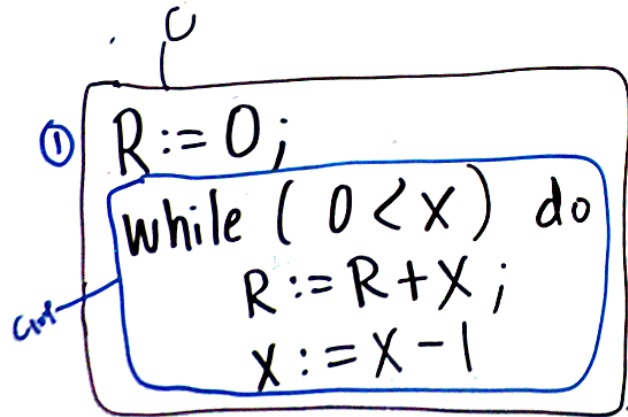 C
① R := 0;
while ( 0 < X ) do
R := R + X ;
X := X - 1